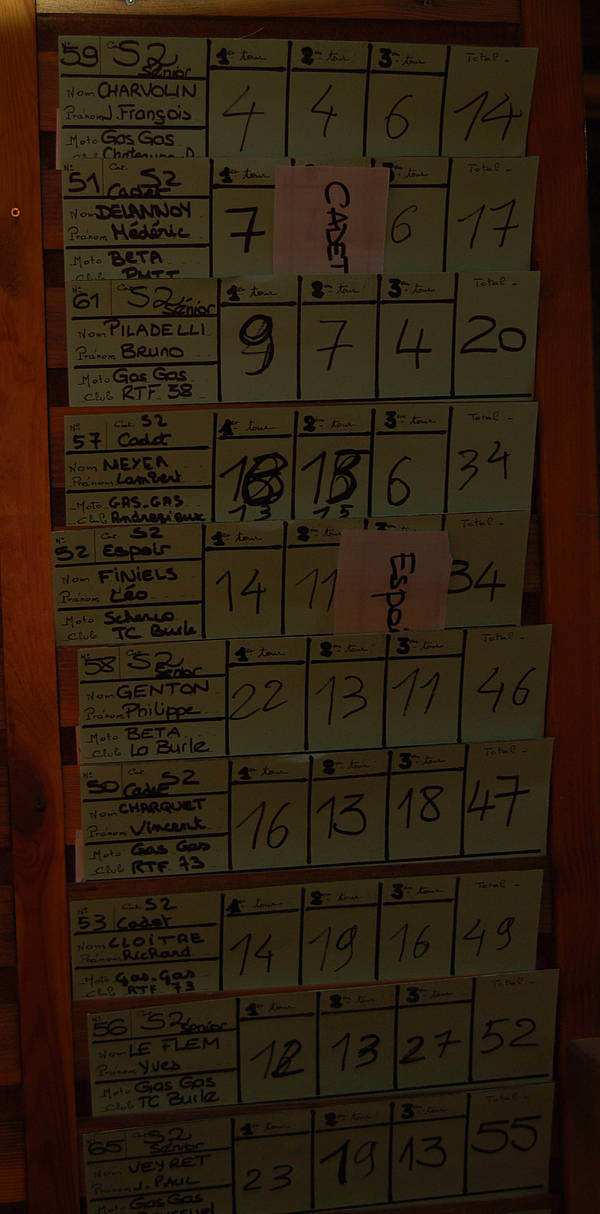 N° 59 Cat. S2 Sénior 1er tour 2ème tour 3ème tour Total
Nom CHARVOLIN
Prénom J. François 4 4 6 14
Moto Gas Gas
N° 51 Cat. S2 Cadet 1er tour Total
Nom DELANNOY CADET
Prénom Médéric 7 6 17
Moto BETA
Club
N° 61 Cat. S2 Sénior 1er tour 2ème tour 3ème tour Total
Nom PILADELLI
Prénom BRUNO 9 7 4 20
Moto Gas Gas
Club RTF 38
N° 57 Cat. S2 Cadet 1er tour 2ème tour 3ème tour Total
Nom MEYER
Prénom Lambert 6 34
Moto GAS-GAS
Club Andrezieux 13 15
N° 52 Cat. S2 Espoir 1er tour Total
Nom FINIELS Espoi
Prénom Léo 14 11 34
Moto Scherco
Club TC Burle
N° 58 Cat. S2 Sénior 1er tour 2ème tour 3ème tour Total
Nom GENTON
Prénom Philippe 22 13 11 46
Moto BETA
Club La Burle
N° 50 Cat. S2 Cadet 1er tour 2ème tour 3ème tour Total
Nom CHARQUET
Prénom Vincent 16 13 18 47
Moto Gas Gas
Club RTF 73
N° 53 Cat. S2 Cadet 1er tour 2ème tour 3ème tour Total
Nom CLOITRE
Prénom Richard 14 19 16 49
Moto Gas-Gas
Club RTF 73
N° 56 Cat. S2 Sénior 1er tour 2ème tour 3ème tour Total
Nom LE FLEM
Prénom Yves 12 13 27 52
Moto Gas Gas
Club TC Burle
N° 65 Cat. S2 Sénior 1er tour 2ème tour 3ème tour Total
Nom VEYRET
Prénom J. PAUL 23 19 13 55
Moto Gas Gas